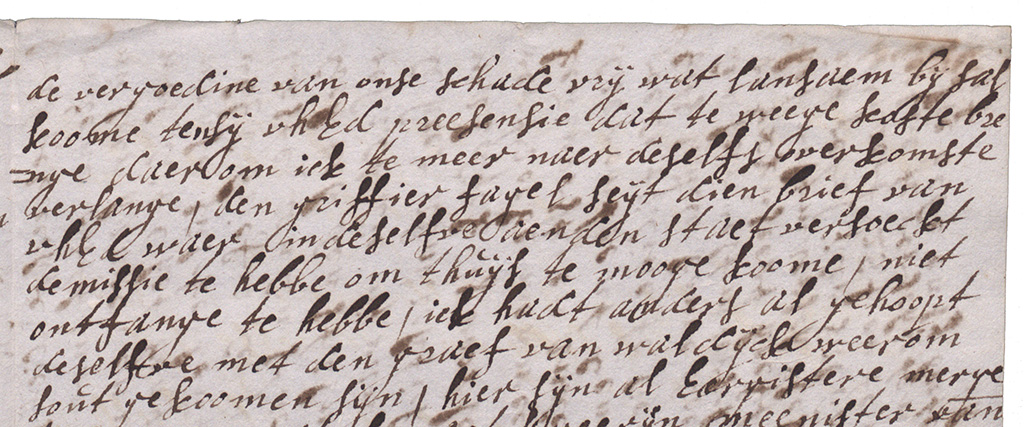 de vergoedine van onse schade vrij wat lansaem bij sal
koome tensij vhEd preesensie dat te weege koste bre
=nge daerom ick te meer naer deselfs overkomste
verlange, den griffier fagel seijt dien brief van
vhEd waer in deselfve aenden staet versoeckt
demissie te hebbe om thuijs te mooge koome, niet
ontfange te hebbe, ick hadt anders al gehoopt
deselfve met den graef van waldijck weerom
sout gekoomen sijn, hier sijn al eergistere merge
meenister van